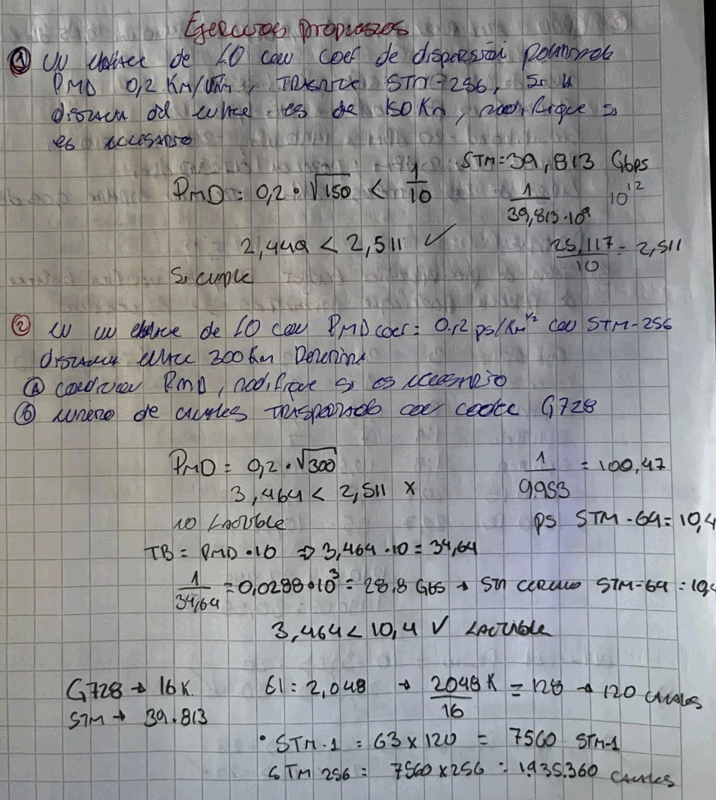 Ejercicios propuestos
① UN enlace de LO con coef de dispersión polarizada
PMD 0,2 Km/√Km, TRASMITE STM-256, Si la
distancia del enlace es de 150 Km, modifique si
es necesario
STM = 39,813 Gbps
PMD = 0,2 • √150 < 1/10
1/39,813•10⁹ 10¹²
2,449 < 2,511 ✓
25,117/10 = 2,511
Si cumple
② EN un enlace de LO con PMD coef = 0.12 ps/Km^½ con STM-256
distancia enlace 300 Km Determine
ⓐ condicion PMD, modifique si es necesario
ⓑ numero de canales TRASPORTADOS con codec G728
PMD = 0,2 • √300
1/9953 = 100,47
3,464 < 2,511 x
ps STM-64 = 10,4
no factible
TB = PMD • 10 ⇒ 3,464 • 10 = 34,64
1/34,64 = 0,0288 • 10³ = 28,8 Gbs → STM cercano STM-64 = 10,
3,464 < 10,4 ✓ factible
G728 → 16 K.
E1: 2,048 → 2048 K/16 = 128 → 120 canales
STM → 39.813
• STM-1 = 63 x 120 = 7560 STM-1
STM 256 = 7560 x 256 = 1935.360 canales